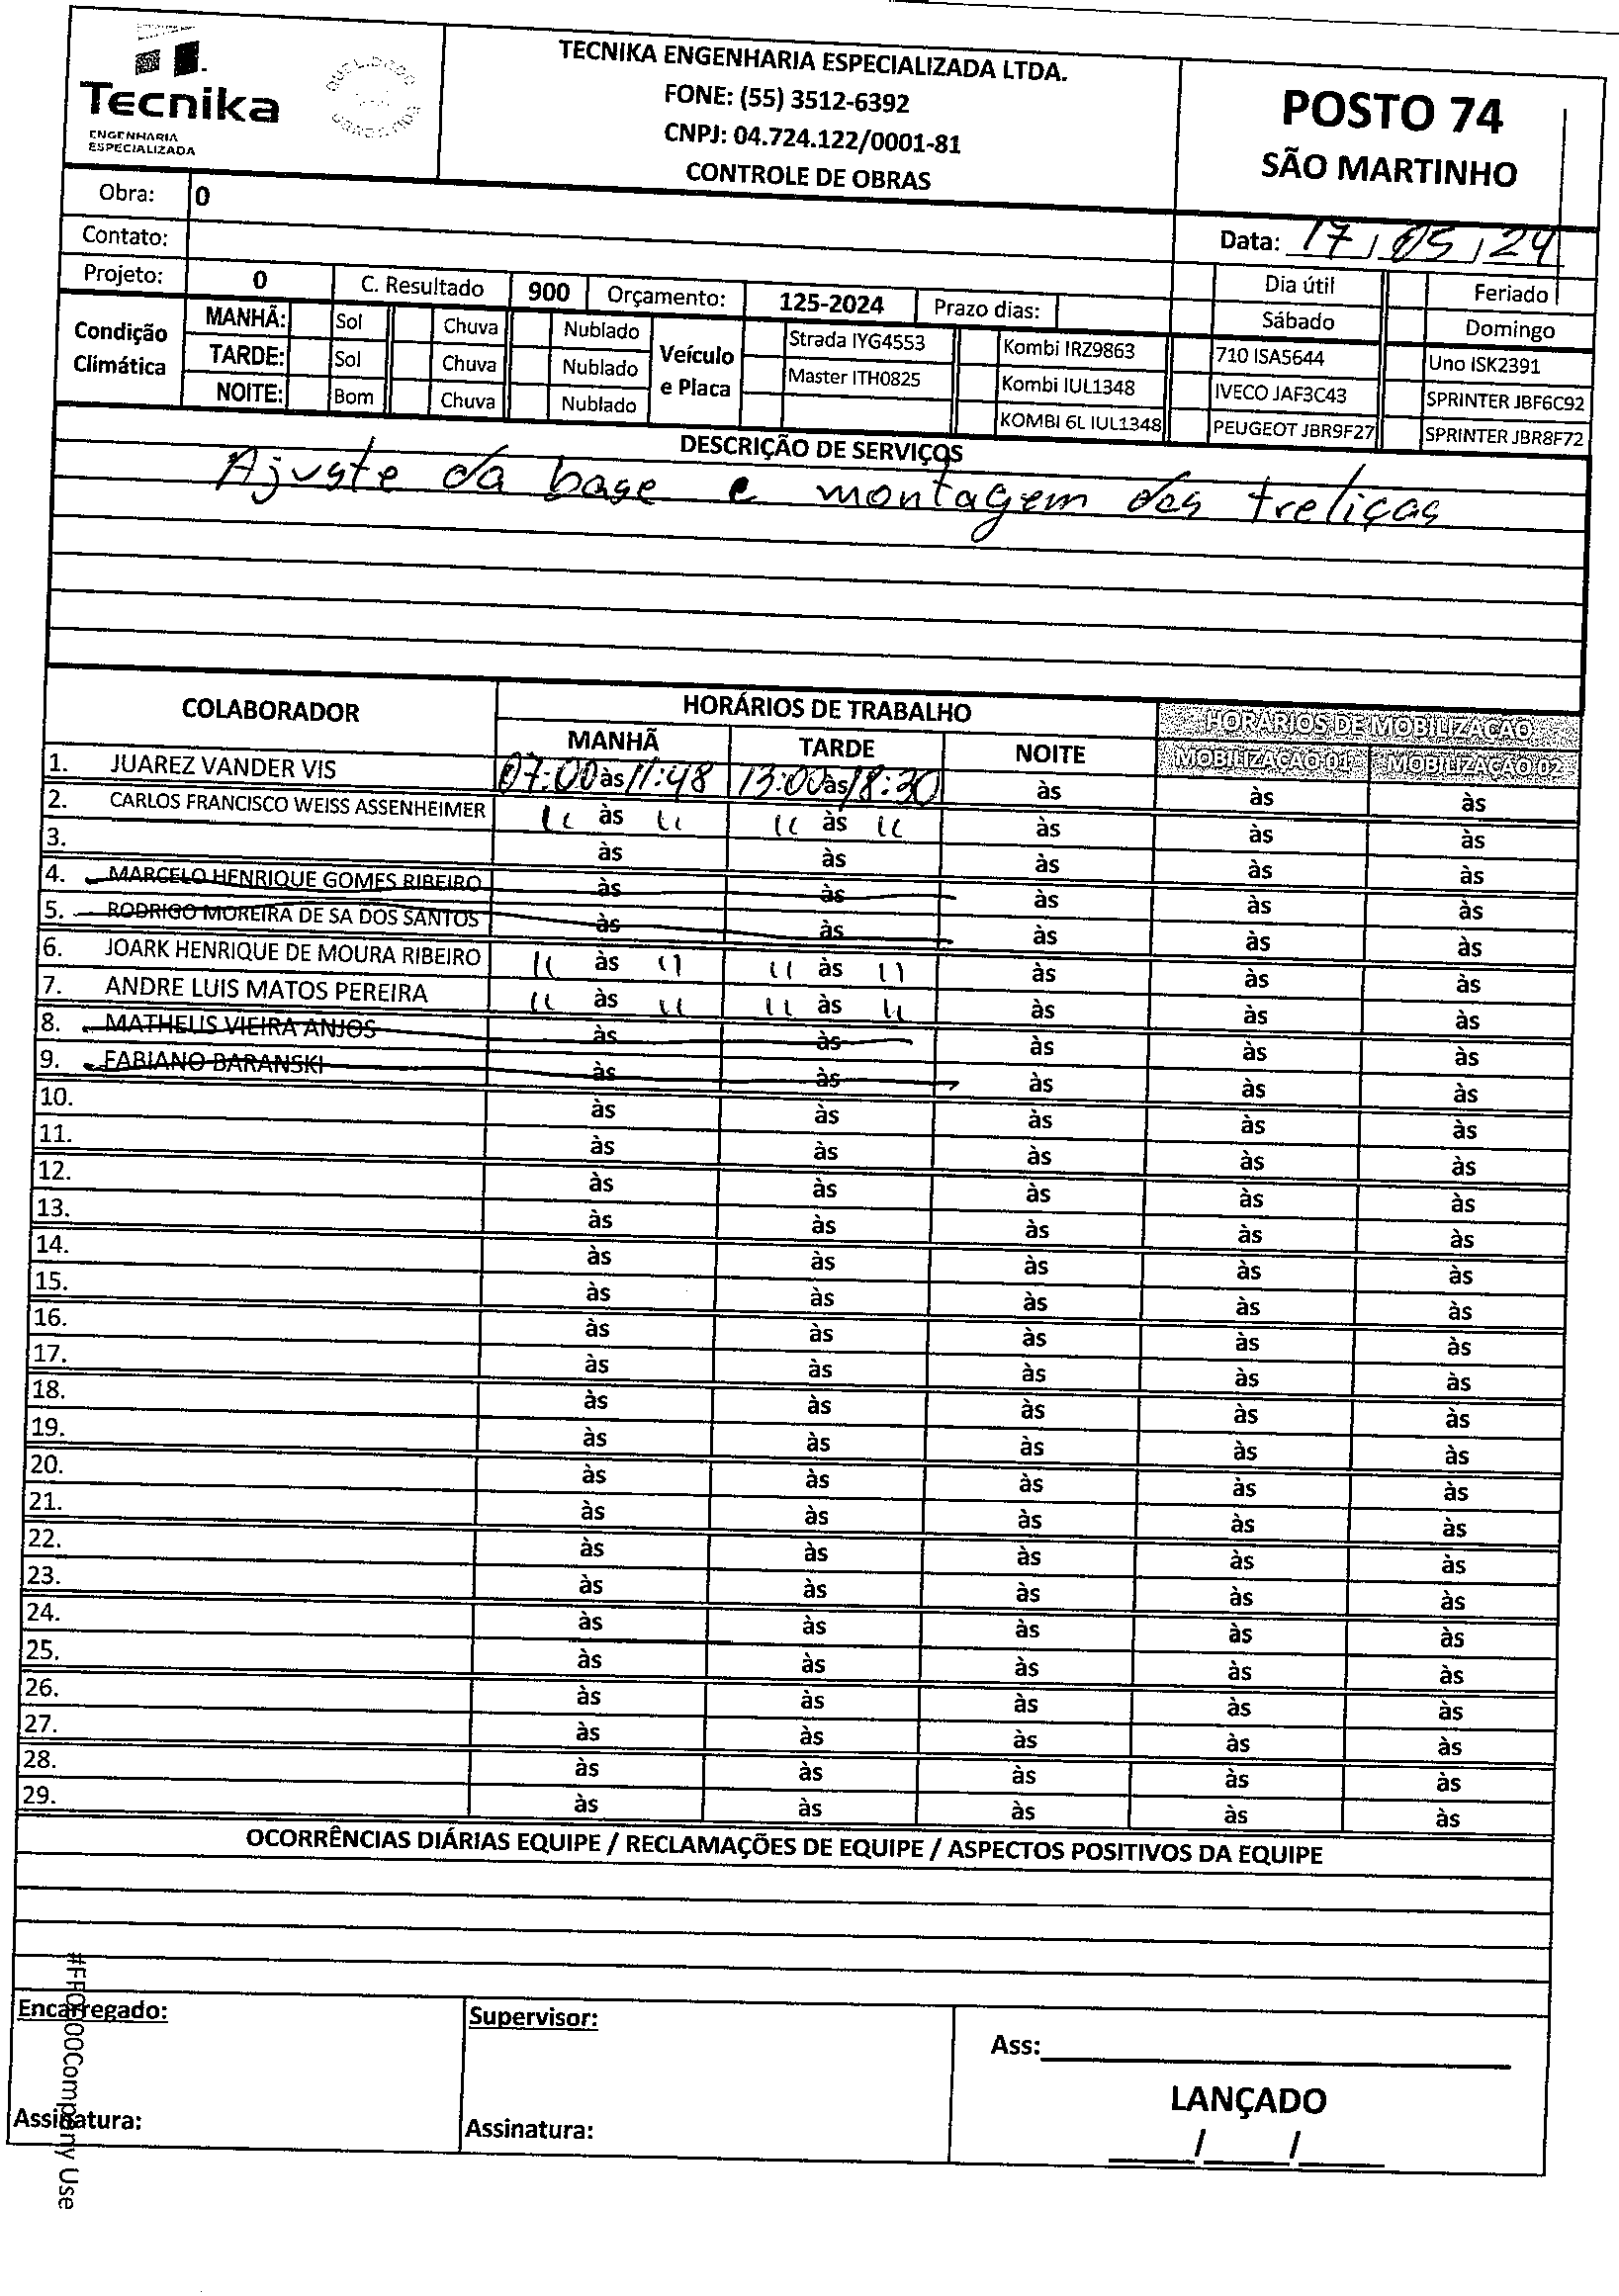 Tecnika
ENGENHARIA
ESPECIALIZADA
TECNIKA ENGENHARIA ESPECIALIZADA LTDA.
FONE: (55) 3512-6392
CNPJ: 04.724.122/0001-81
CONTROLE DE OBRAS
POSTO 74
SÃO MARTINHO
Obra: 0
Contato:
Data: 17/05/24
Projeto: 0 C. Resultado 900 Orçamento: 125-2024 Prazo dias: Dia útil Feriado
Sábado Domingo
Condição Climática
MANHÃ: Sol Chuva Nublado
TARDE: Sol Chuva Nublado
NOITE: Bom Chuva Nublado
Veículo e Placa
Strada IYG4553 Kombi IRZ9863 710 ISA5644 Uno ISK2391
Master ITH0825 Kombi IUL1348 IVECO JAF3C43 SPRINTER JBF6C92
KOMBI 6L IUL1348 PEUGEOT JBR9F27 SPRINTER JBR8F72
DESCRIÇÃO DE SERVIÇOS
Ajuste da base e montagem das treliças
COLABORADOR HORÁRIOS DE TRABALHO HORÁRIOS DE MOBILIZAÇÃO
MANHÃ TARDE NOITE MOBILIZAÇÃO 01 MOBILIZAÇÃO 02
1. JUAREZ VANDER VIS 07:00 às 11:48 13:00 às 18:30 às às às
2. CARLOS FRANCISCO WEISS ASSENHEIMER " às " " às " às às às
3. às às às às às
4. MARCELO HENRIQUE GOMES RIBEIRO às às às às às
5. RODRIGO MOREIRA DE SA DOS SANTOS às às às às às
6. JOARK HENRIQUE DE MOURA RIBEIRO " às " " às " às às às
7. ANDRE LUIS MATOS PEREIRA " às " " às " às às às
8. MATHEUS VIEIRA ANJOS às às às às às
9. FABIANO BARANSKI às às às às às
10. às às às às às
11. às às às às às
12. às às às às às
13. às às às às às
14. às às às às às
15. às às às às às
16. às às às às às
17. às às às às às
18. às às às às às
19. às às às às às
20. às às às às às
21. às às às às às
22. às às às às às
23. às às às às às
24. às às às às às
25. às às às às às
26. às às às às às
27. às às às às às
28. às às às às às
29. às às às às às
OCORRÊNCIAS DIÁRIAS EQUIPE / RECLAMAÇÕES DE EQUIPE / ASPECTOS POSITIVOS DA EQUIPE
Encarregado:
Assinatura:
Supervisor:
Assinatura:
Ass:
LANÇADO
/ /
#FF0000Company Use